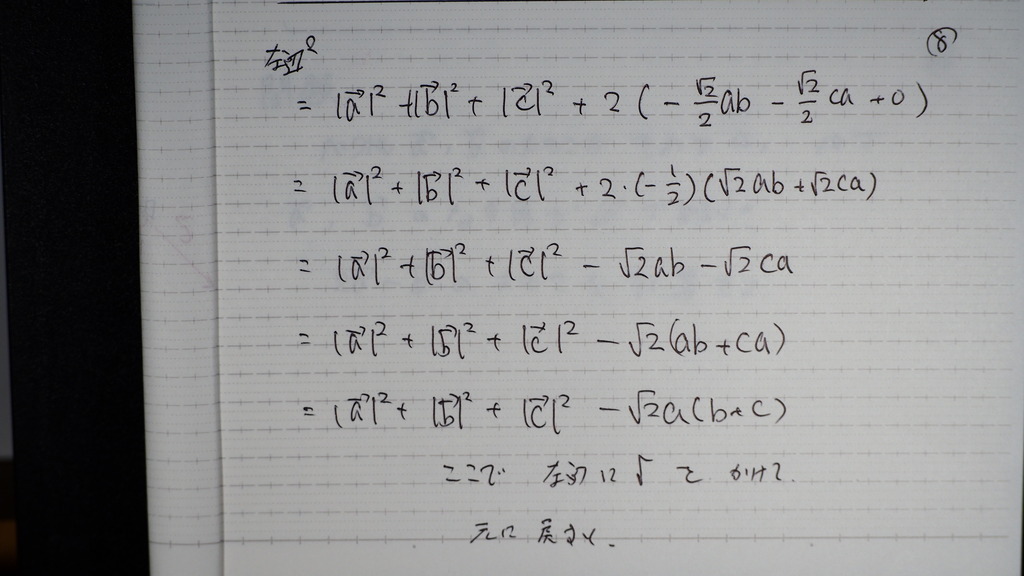 ⑧
左辺²
= |a⃗|² + |b⃗|² + |c⃗|² + 2 ( - √2/2 ab - √2/2 ca + 0 )
= |a⃗|² + |b⃗|² + |c⃗|² + 2・(-1/2)(√2ab + √2ca)
= |a⃗|² + |b⃗|² + |c⃗|² - √2ab - √2ca
= |a⃗|² + |b⃗|² + |c⃗|² - √2(ab + ca)
= |a⃗|² + |b⃗|² + |c⃗|² - √2a(b+c)
ここで 左辺に √ を かけて.
元に 戻すと.